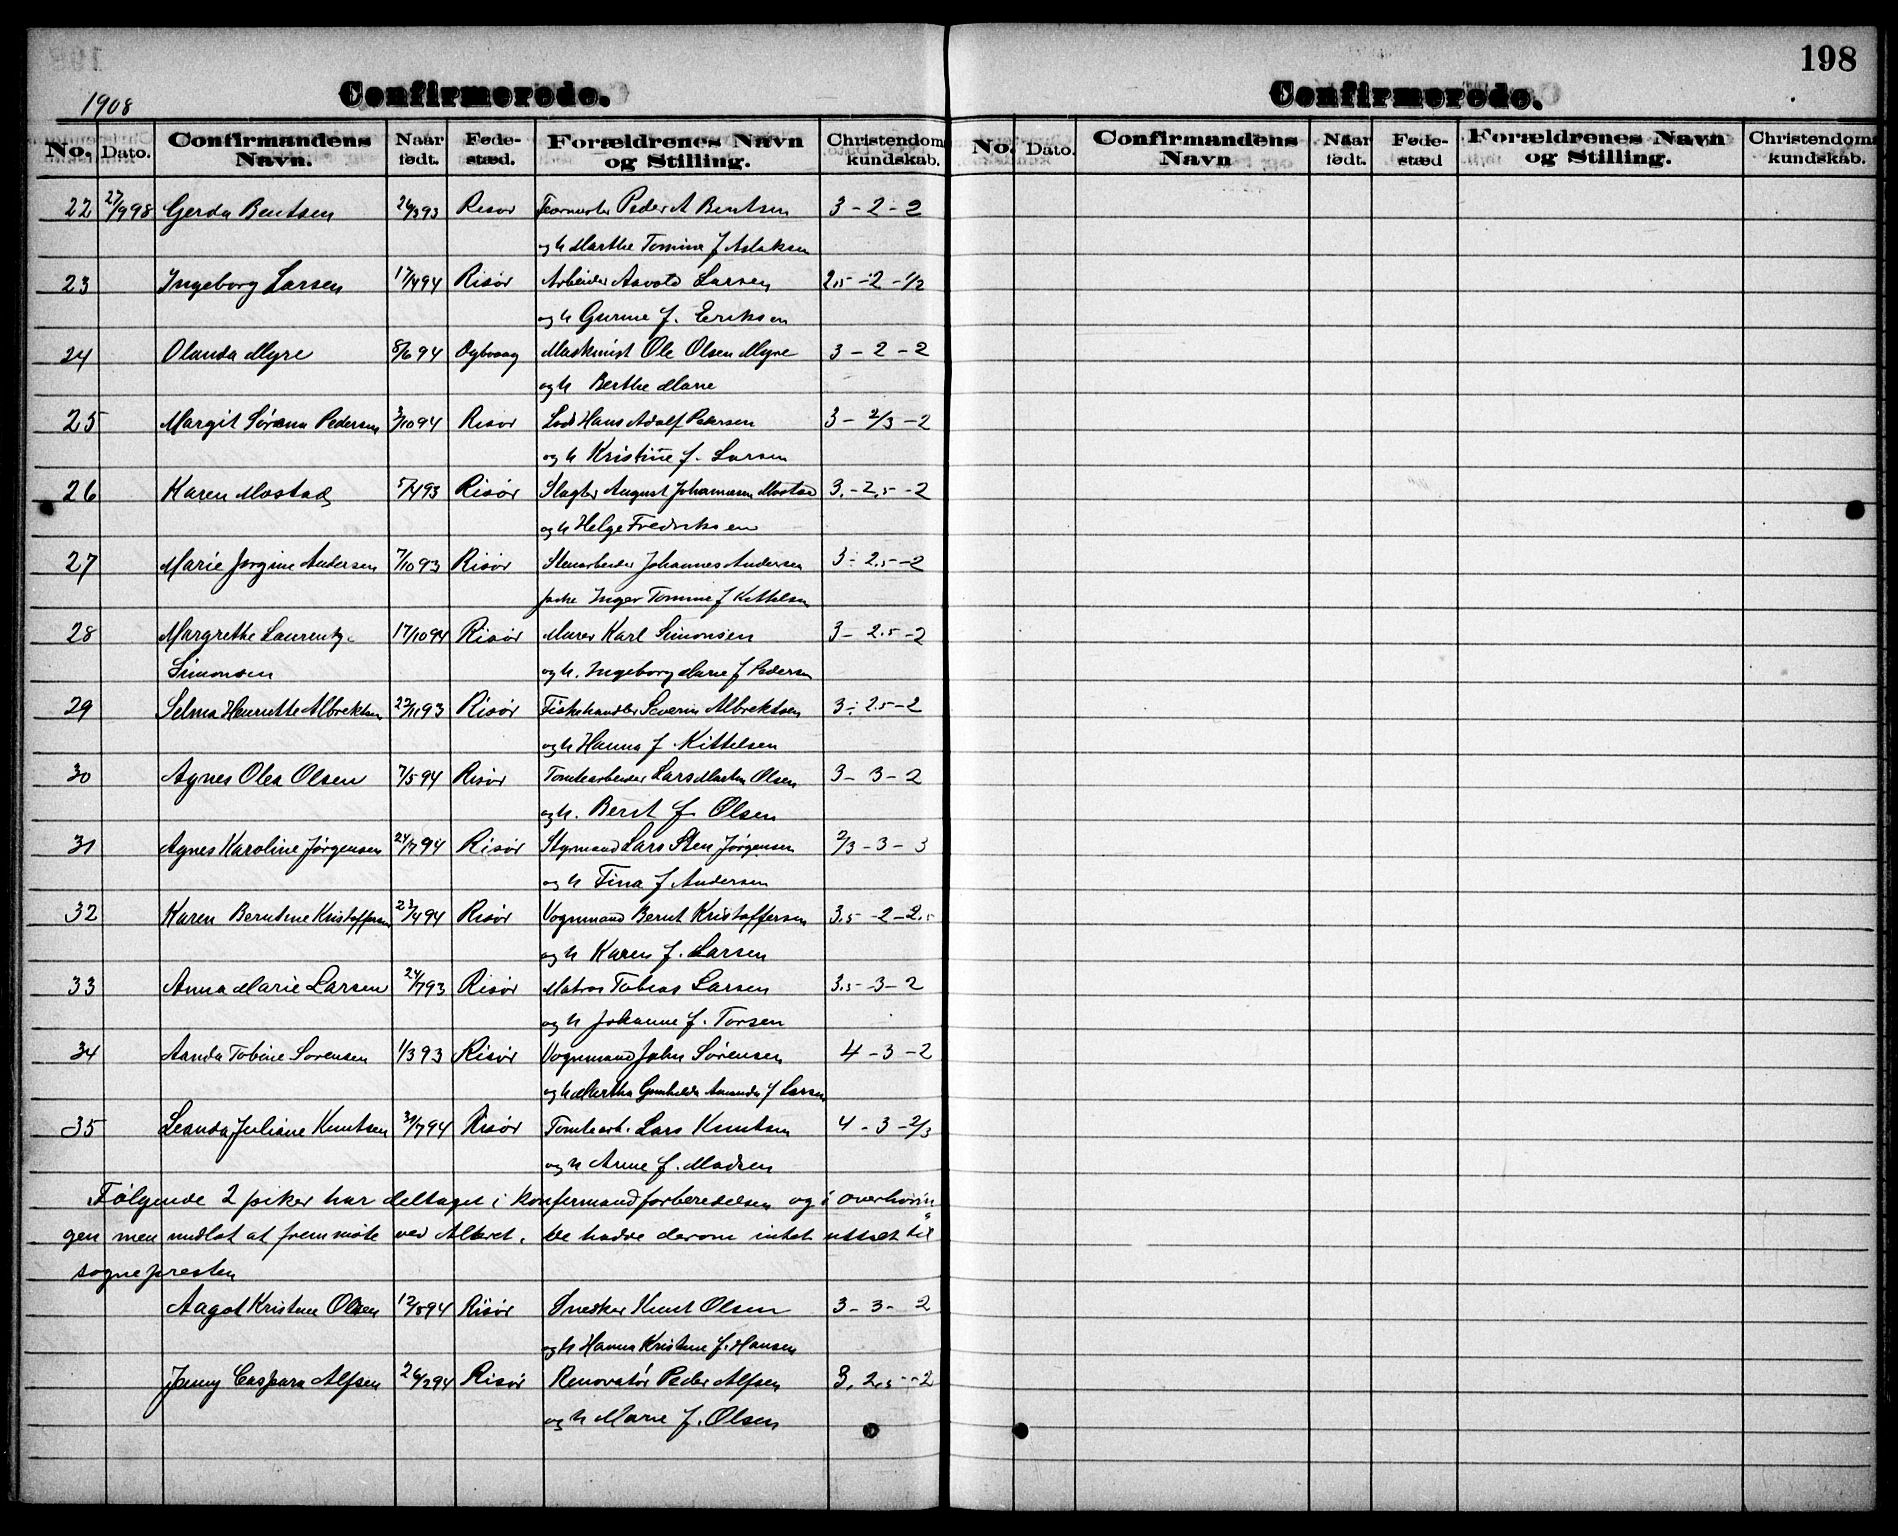 198
1908
Confirmerede.
Confirmerede.
No. Dato. Confirmandens Navn. Naar født. Føde-stæd. Forældrenes Navn og Stilling. Christendoms kundskab.
No. Dato. Confirmandens Navn Naar født. Føde-stæd Forældrenes Navn og Stilling. Christendoms kundskab.
22 27/9 98 Gerda Bentsen 26/3 93 Risør Peder A Bentsen 3 - 2 - 2
og h Marthe Tomine f Aslaksen
23 Ingeborg Larsen 17/4 94 Risør Arbeider Aavold Larsen 2,5 - 2 - 1/2
og h Gurine f. Eriksen
24 Olanda Myre 8/6 94 Maskinist Ole Olsen Myre 3 - 2 - 2
og h Berthe Marie
25 Margit Sørena Pedersen 3/10 94 Risør Lods Hans Adolf Pedersen 3 - 2/3 - 2
og h Kristine f. Larsen
26 Karen Mostad 5/4 93 Risør Slagter August Johannesen Mostad 3. - 2,5 - 2
og h Helge Fredriksen
27 Marie Jørgine Andersen 7/10 93 Risør Stenarbeider Johannes Andersen 3 - 2,5 - 2
Inger Tomine f Kittelsen
28 Margrethe Laurentz- 17/10 94 Risør Murer Karl Simonsen 3 - 2.5 - 2
Simonsen og h. Ingeborg Marie f Pedersen
29 Selma Henriette Albrektsen 22/11 93 Risør Fiskehandler Severin Albrektsen 3 - 2.5 - 2
og h Hanna f. Kittelsen
30 Agnes Olea Olsen 7/5 94 Risør Tomtearbeider Lars Martin Olsen 3 - 3 - 2
og h. Berit f. Olsen
31 Agnes Karoline Jørgensen 24/7 94 Risør Styrmand Lars Sten Jørgensen 2/3 - 3 - 3
og h Tina f Andersen
32 Karen Berntine Kristoffersen 23/4 94 Risør Vognmand Bernt Kristoffersen 3,5 - 2 - 2,5
og h Karen f. Larsen
33 Anna Marie Larsen 24/7 93 Risør Matros Tobias Larsen 3,5 - 3 - 2
og h Johanne f. Torsen
34 Aanda Tobine Sørensen 1/3 93 Risør Vognmand John Sørensen 4 - 3 - 2
og h Martha Gunhilda Amanda f Larsen
35 Leanda Juliane Knutsen 30/7 94 Risør Tomtearb. Lars Knutsen 4 - 3 - 2/3
og h Anne f. Madsen
Følgende 2 piker har deltaget i konfirmandforberedelsen og i overhørin
gen men undlot at fremmøte ved Alteret. De hadde derom intet uttalt til
sognepresten
Aagot Kristine Olsen 12/5 94 Risør Snedker Knut Olsen 3 - 3 - 2
og h Hanna Kristine f. Hansen
Jenny Caspara Alfsen 26/2 94 Risør Renovatør Peder Alfsen 3. 2,5 - 2
og h Marie f. Olsen